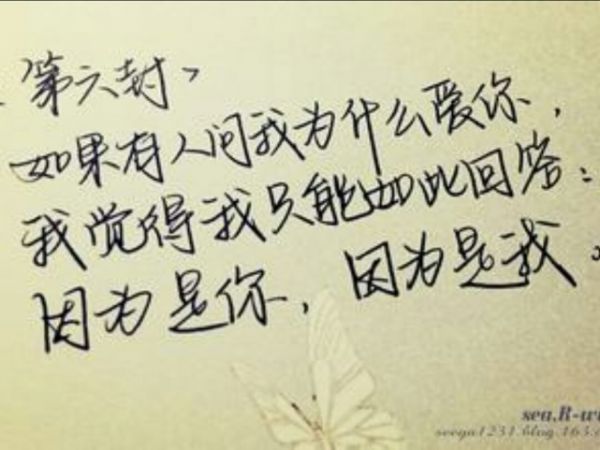 第六封、
如果有人问我为什么爱你，
我觉得我只能如此回答：
因为是你，因为是我。
sea.R-w
seeya1231.blog.163.c